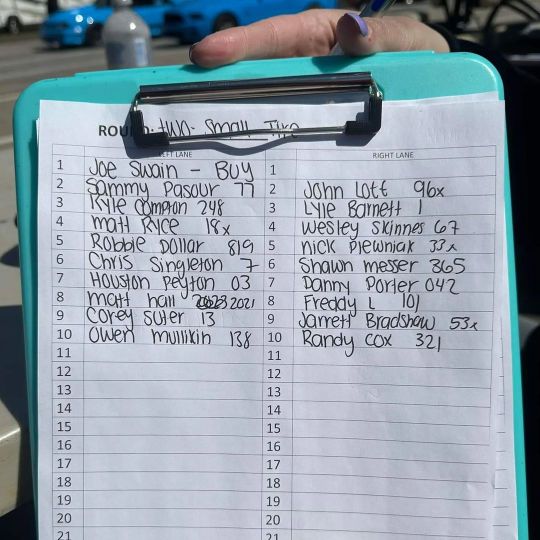 ROUND: two: Small Tire
LEFT LANE RIGHT LANE
1 Joe Swain - BUY 1
2 Sammy Pasour 77 2 John Lott 96x
3 Kyle Compton 248 3 Lyle Barnett 1
4 Matt Ryce 18x 4 Wesley Skinnes 67
5 Robbie Dollar 819 5 nick Plewniak 33x
6 Chris Singleton 7 6 Shawn messer 365
7 Houston Peyton 03 7 Danny Porter 042
8 matt hall 2021 8 Freddy L 101
9 Corey Suter 13 9 Jarrett Bradshaw 53x
10 Owen mullikin 138 10 Randy Cox 321
11 11
12 12
13 13
14 14
15 15
16 16
17 17
18 18
19 19
20 20
21 21